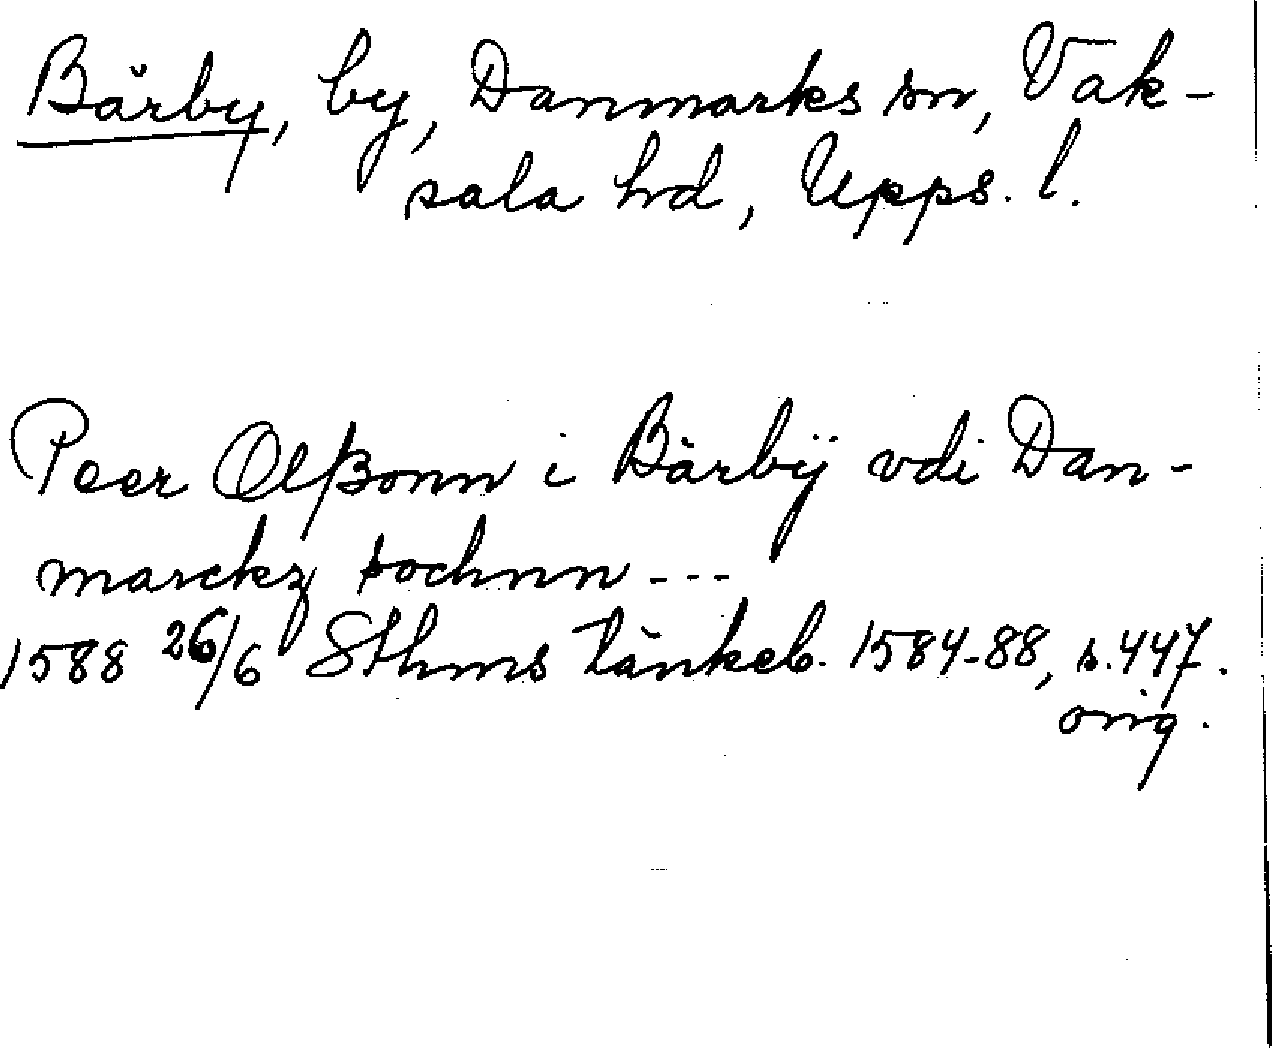 Bärby, by, Danmarks sn, Vak-
sala hd, Upps. l.
Peer Olßonn i Bärbÿ vdi Dan-
marckz sochnn ---
1588 26/6 Sthms tänkeb. 1584-88, s. 447.
orig.